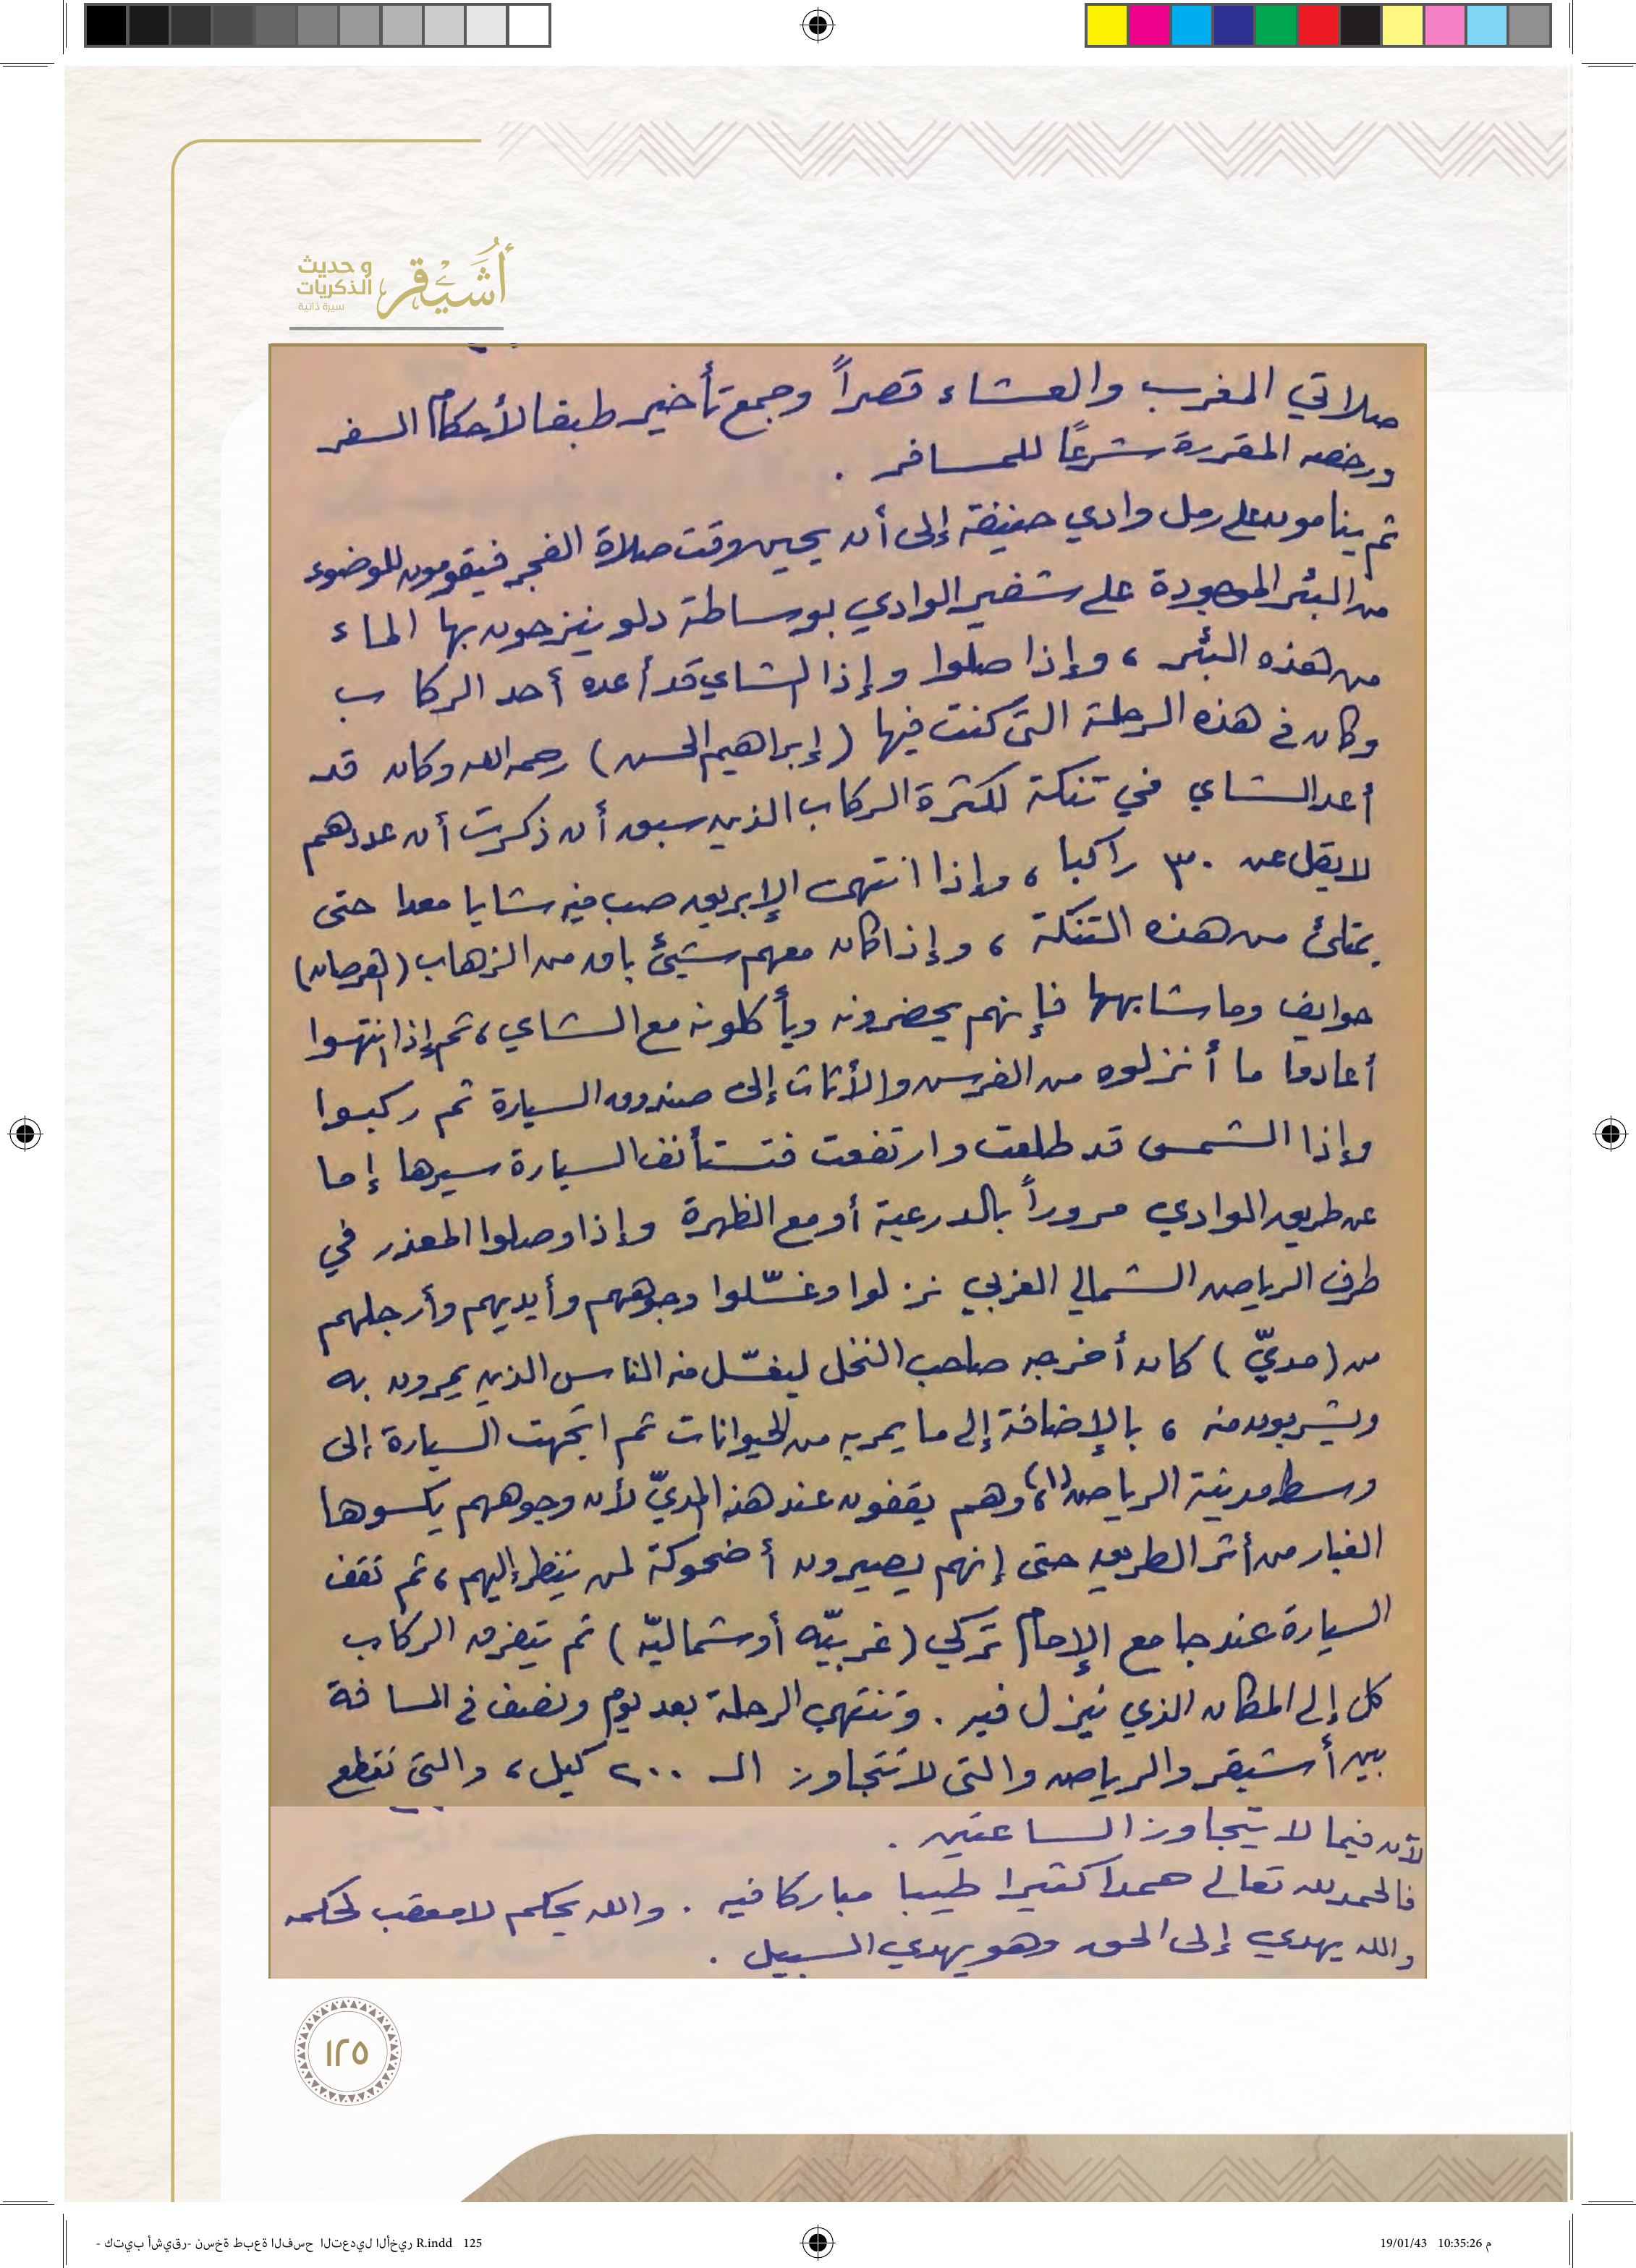 أُشَيْقر
و حديث
الذكريات
سيرة ذاتية
صلاتي المغرب والعشاء قصراً وجمع تأخير طبقا لأحكام السفر
ورخصه المقررة شرعًا للمسافر .
ثم ينامون على رمل وادي حنيفة إلى أن يحين وقت صلاة الفجر فيقومون للوضوء
من البئر الموجودة على شفير الوادي بوساطة دلو ينزحون بها الماء
من هذه البئر ، وإذا صلوا وإذا الشاي قد أعده أحد الركاب
وكان في هذه الرحلة التي كنت فيها (إبراهيم الحسن) رحمه الله وكان قد
أعد الشاي في تنكة لكثرة الركاب الذين سبق أن ذكرت أن عددهم
لا يقل عن ٣٠ راكبا ، وإذا انتهى الإبريق صب فيه شايا معدا حتى
يمتلئ من هذه التنكة ، وإذا كان معهم شيئ باق من الزهاب (قرصان)
حوايف وما شابهها فإنهم يحضرونه ويأكلونه مع الشاي ، ثم إذا انتهوا
أعادوا ما أنزلوه من الفرس والأثاث إلى صندوق السيارة ثم ركبوا
وإذا الشمس قد طلعت وارتفعت فتستأنف السيارة سيرها إما
عن طريق الوادي مروراً بالدرعية أو مع الظهرة وإذا وصلوا المعذر في
طرف الرياض الشمالي الغربي نزلوا وغسّلوا وجوههم وأيديهم وأرجلهم
من (مديّ) كان أخرجه صاحب النخل ليغسّل منه الناس الذين يمرون به
ويشربون منه ، بالإضافة إلى ما يمر به من الحيوانات ثم اتجهت السيارة إلى
وسط مدينة الرياض(١)، وهم يقفون عند هذا المديّ لأن وجوههم يكسوها
الغبار من أثر الطريق حتى إنهم يصيرون أضحوكة لمن ينظر إليهم ، ثم تقف
السيارة عند جامع الإمام تركي (غربيّه أو شماليّه) ثم يتفرق الركاب
كل إلى المكان الذي ينزل فيه . وتنتهي الرحلة بعد يوم ونصف في المسافة
بين أشيقر والرياض والتي لا تتجاوز الـ ٢٠٠ كيل ، والتي تقطع
لآن فيما لا يتجاوز الساعتين .
فالحمد لله تعالى حمدا كثيرا طيبا مباركا فيه . والله يحكم لا معقب لحكمه
والله يهدي إلى الحق وهو يهدي السبيل .
١٢٥
- كتيب أشيقر- نسخة طبعة الفسح التعديل الأخير R.indd 125
19/01/43 10:35:26 م